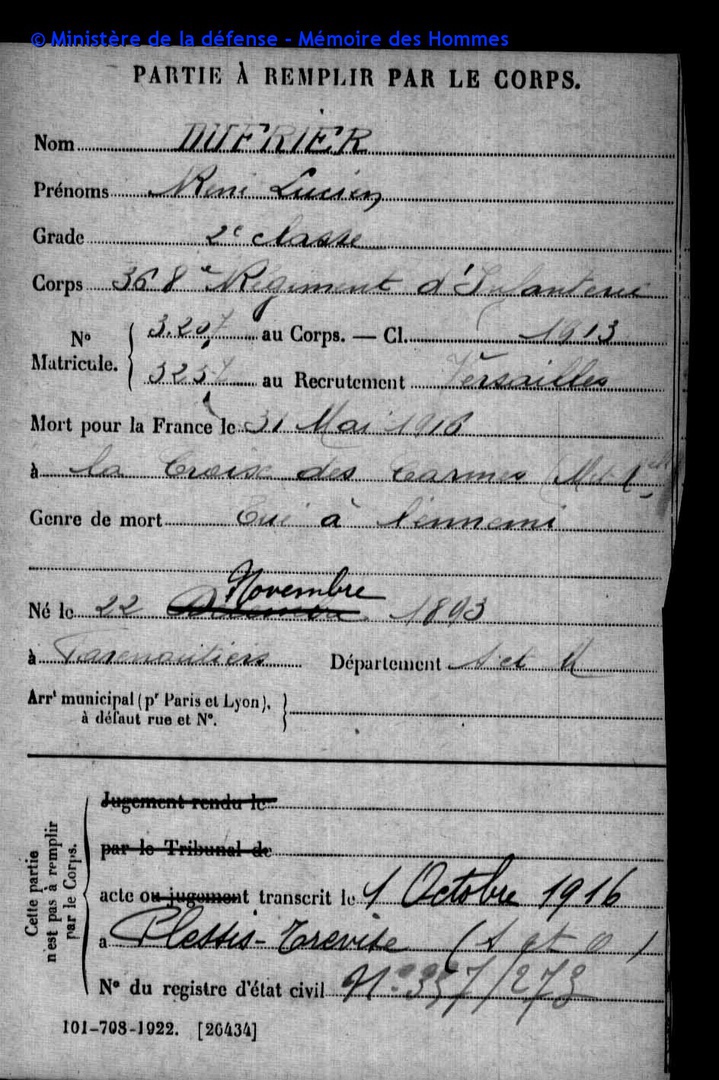 © Ministère de la défense - Mémoire des Hommes
PARTIE À REMPLIR PAR LE CORPS.
Nom DUFRIER
Prénoms René Lucien
Grade 2e classe
Corps 368e Régiment d'Infanterie
No Matricule. 3.207 au Corps. — Cl. 1913
3237 au Recrutement Versailles
Mort pour la France le 31 Mai 1916
à la Croix des Carmes (Mthe Mlle
Genre de mort Tué à l'ennemi
Novembre
Né le 22 Décembre 1893
à Faremoutiers Département S et M
Arrt municipal (pr Paris et Lyon),
à défaut rue et No.
Cette partie
n'est pas à remplir
par le Corps.
Jugement rendu le
par le Tribunal de
acte ou jugement transcrit le 1 Octobre 1916
à Plessis-Trévise (S et O)
No du registre d'état civil No 357/273
101-708-1922. [26434]